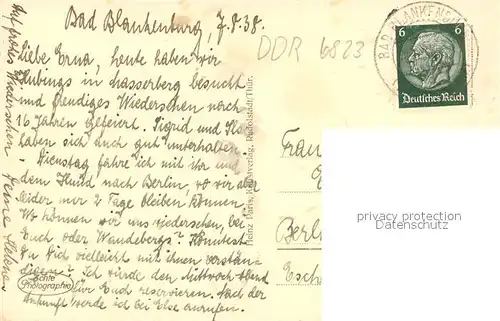 Bad Blankenburg, 7.8.38.
DDR 6823
BAD BLANKENBURG
6 6
Deutsches Reich
Liebe Erna, heute haben wir
Hubings in Wasserberg besucht
und freudiges Wiedersehen nach
16 Jahren gefeiert. Sigrid und
haben sich auch gut unterhalten.
Dienstag fahre ich mit ihr und
dem Kind nach Berlin, wo wir aber
leider nur 2 Tage bleiben können
Wo können wir uns wiedersehen, bei
Euch oder Wandebergs? Könntest
Du Dich vielleicht mit ihnen verstän-
digen? Ich würde den Mittwoch abend
für Euch reservieren. Nach der
Ankunft werde ich bei Else anrufen.
Auf frohes Wiedersehen Deine Helene
Echte
Photographie
Heinz Paris, Kunstverlag, Rudolstadt/Thür.
Frau
Berlin
privacy protection
Datenschutz